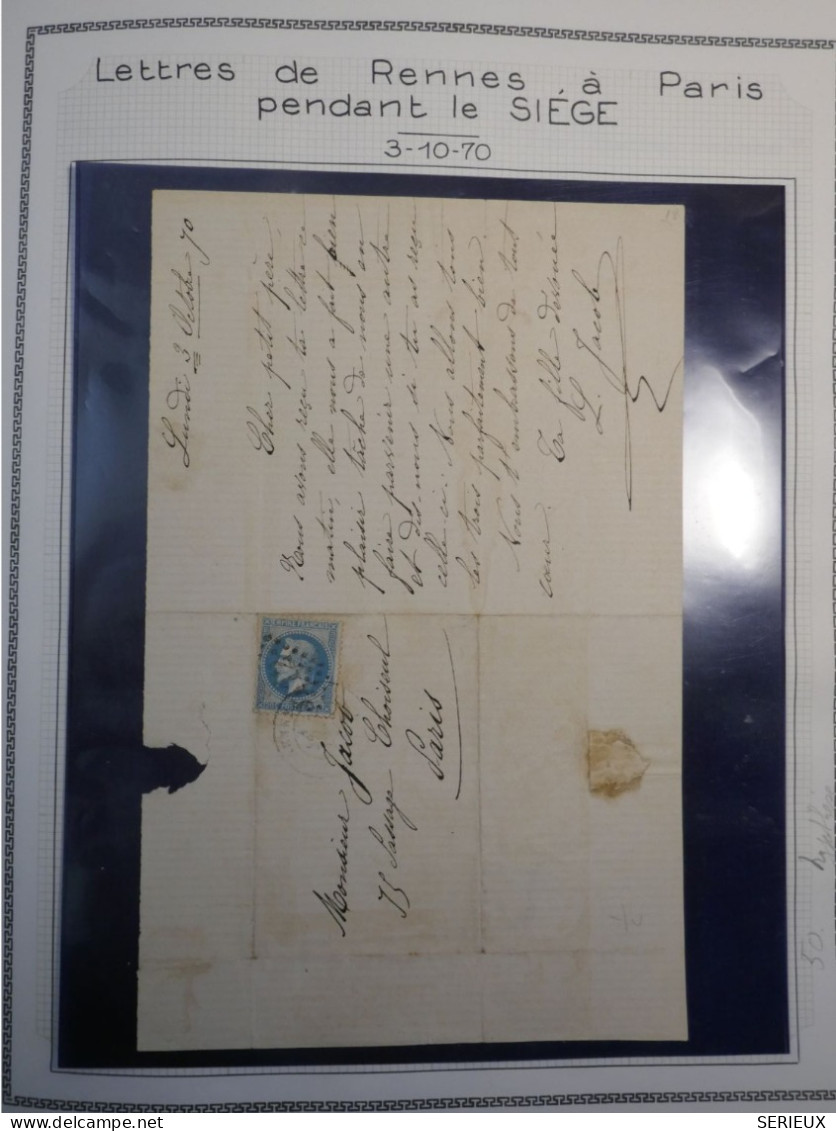 Lettres de Rennes à Paris
pendant le SIÉGE
3-10-70
Lundi 3 Octobre 70
Cher petit père
Nous avons reçu ta lettre ce
matin, elle nous a fait bien
plaisir tâche de nous en
faire parvenir une autre
et dis nous si tu as reçu
celle ci. Nous allons tous
les trois parfaitement bien.
Nous t'embrassons de tout
cœur.
Ta fille dévouée
L. Jacob
EMPIRE FRANÇAIS
Monsieur Jacob
75 Passage Choiseul
Paris
50
SERIEUX